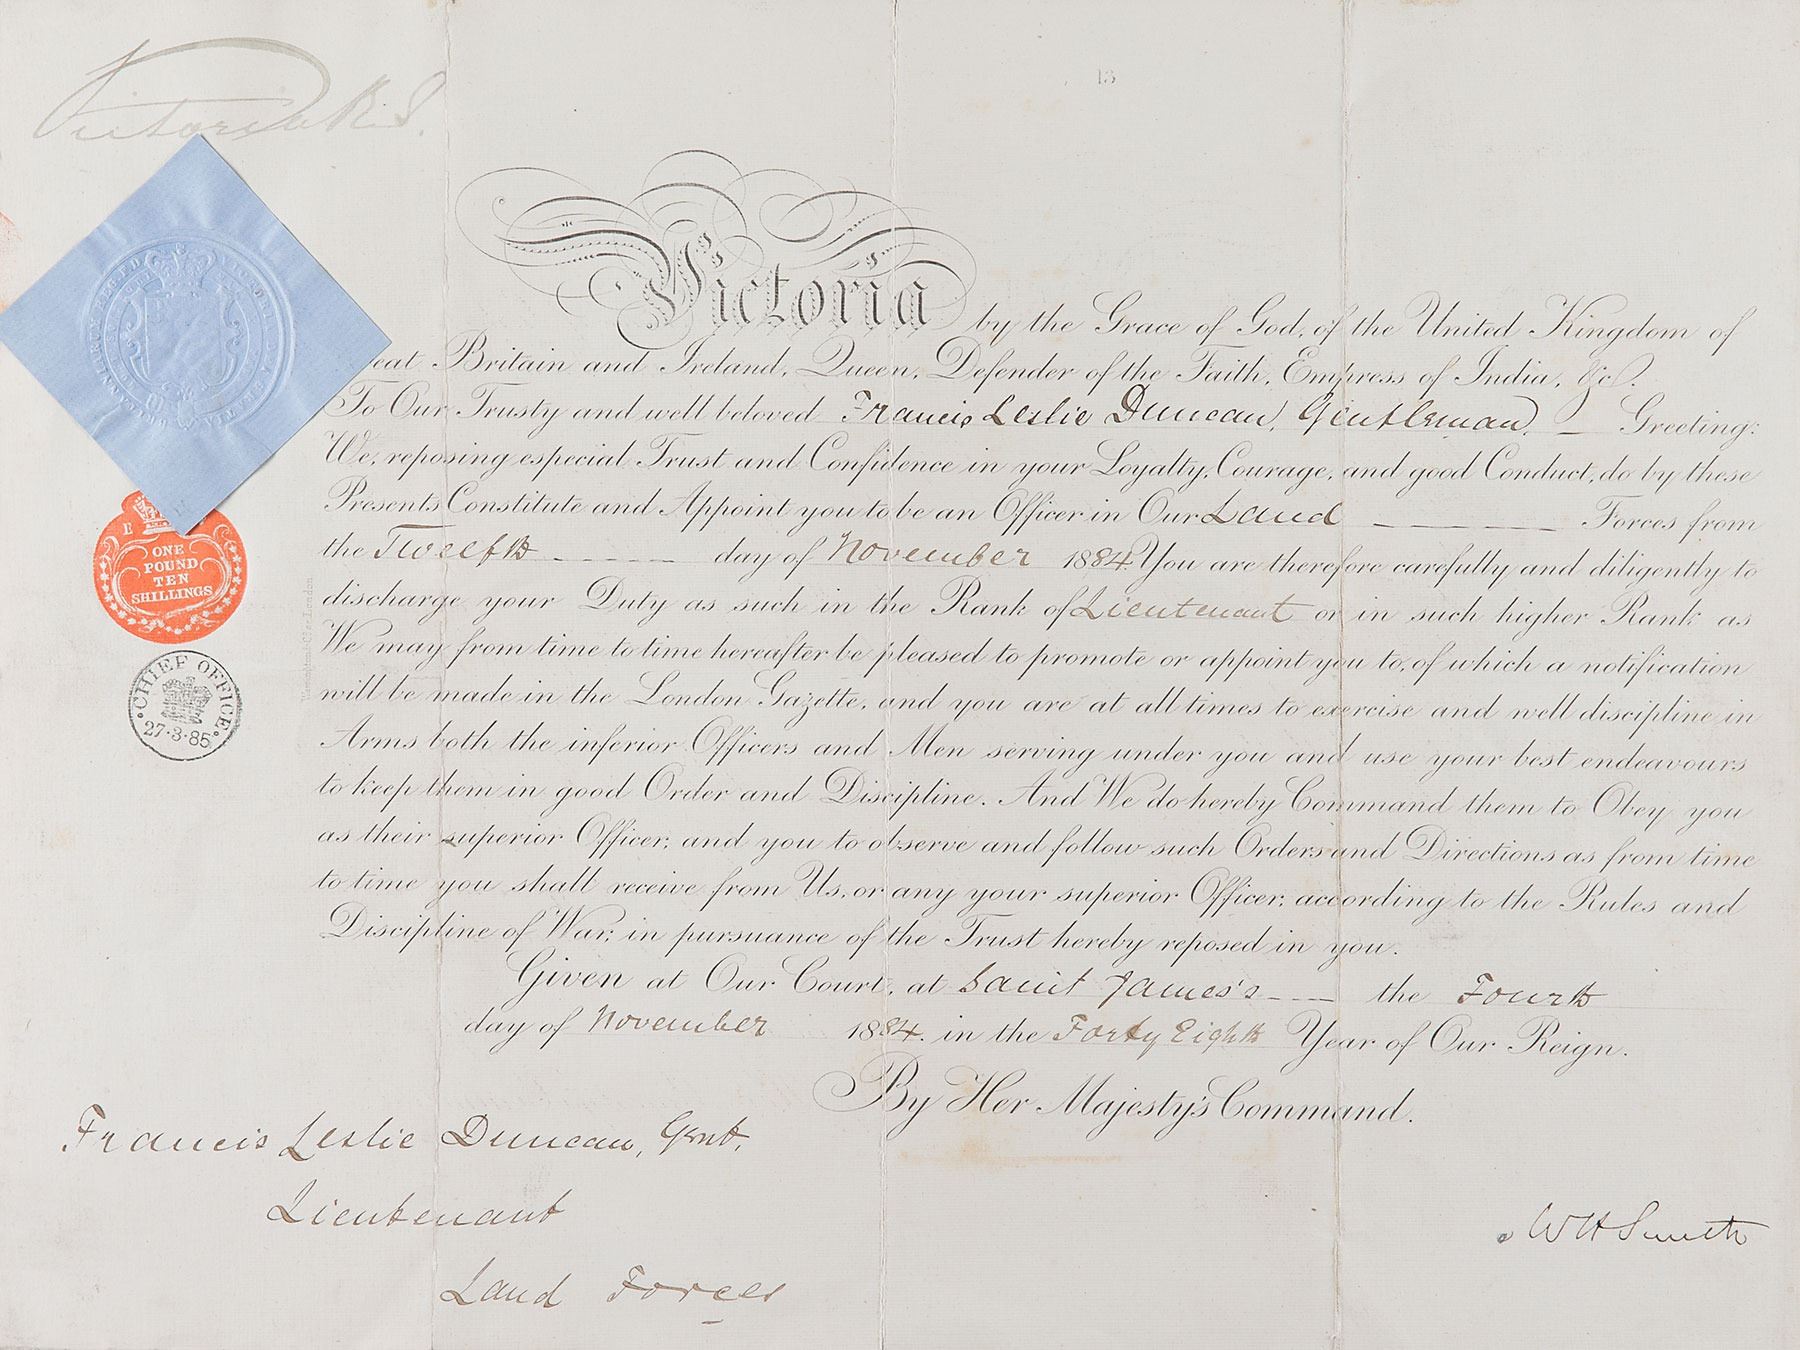 Victoria R.I.
13
Victoria by the Grace of God, of the United Kingdom of
eat Britain and Ireland, Queen, Defender of the Faith, Empress of India, &c.
To Our Trusty and well beloved Francis Leslie Duncan, Gentleman, Greeting:
We, reposing especial Trust and Confidence in your Loyalty, Courage, and good Conduct, do by these
Presents Constitute and Appoint you to be an Officer in Our Land Forces from
the Twelfth day of November 1884. You are therefore carefully and diligently to
discharge your Duty as such in the Rank of Lieutenant or in such higher Rank as
We may from time to time hereafter be pleased to promote or appoint you to, of which a notification
will be made in the London Gazette, and you are at all times to exercise and well discipline in
Arms both the inferior Officers and Men serving under you and use your best endeavours
to keep them in good Order and Discipline. And We do hereby Command them to Obey you
as their superior Officer, and you to observe and follow such Orders and Directions as from time
to time you shall receive from Us, or any your superior Officer, according to the Rules and
Discipline of War, in pursuance of the Trust hereby reposed in you.
Given at Our Court, at Saint James's the Fourth
day of November 1884. in the Forty Eighth Year of Our Reign.
By Her Majesty's Command.
E
ONE
POUND
TEN
SHILLINGS
CHIEF OFFICE
27·3·85
Francis Leslie Duncan, Gent,
Lieutenant
Land Forces
WH Smith